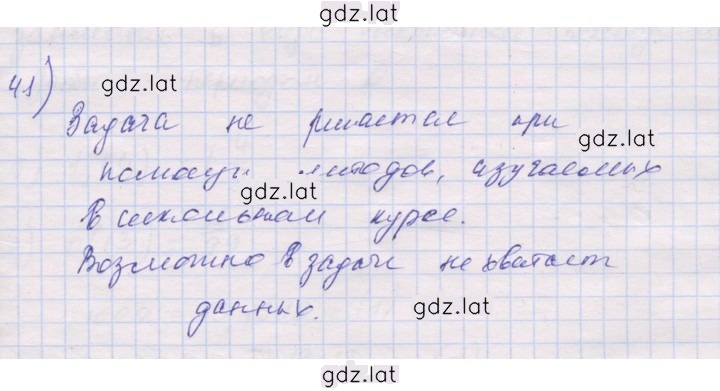 gdz.lat
41)
gdz.lat
Задача не решается при
gdz.lat
помощи методов, изучаемых
gdz.lat
в школьном курсе.
Возможно в задаче не хватает
данных.
gdz.lat
gdz.lat